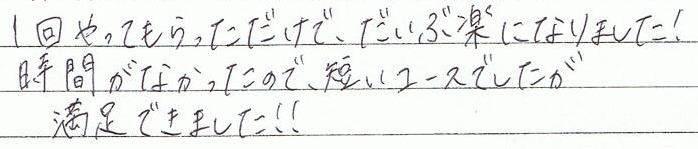 1回やってもらっただけで、だいぶ楽になりました!
時間がなかったので、短いコースでしたが
満足できました!!